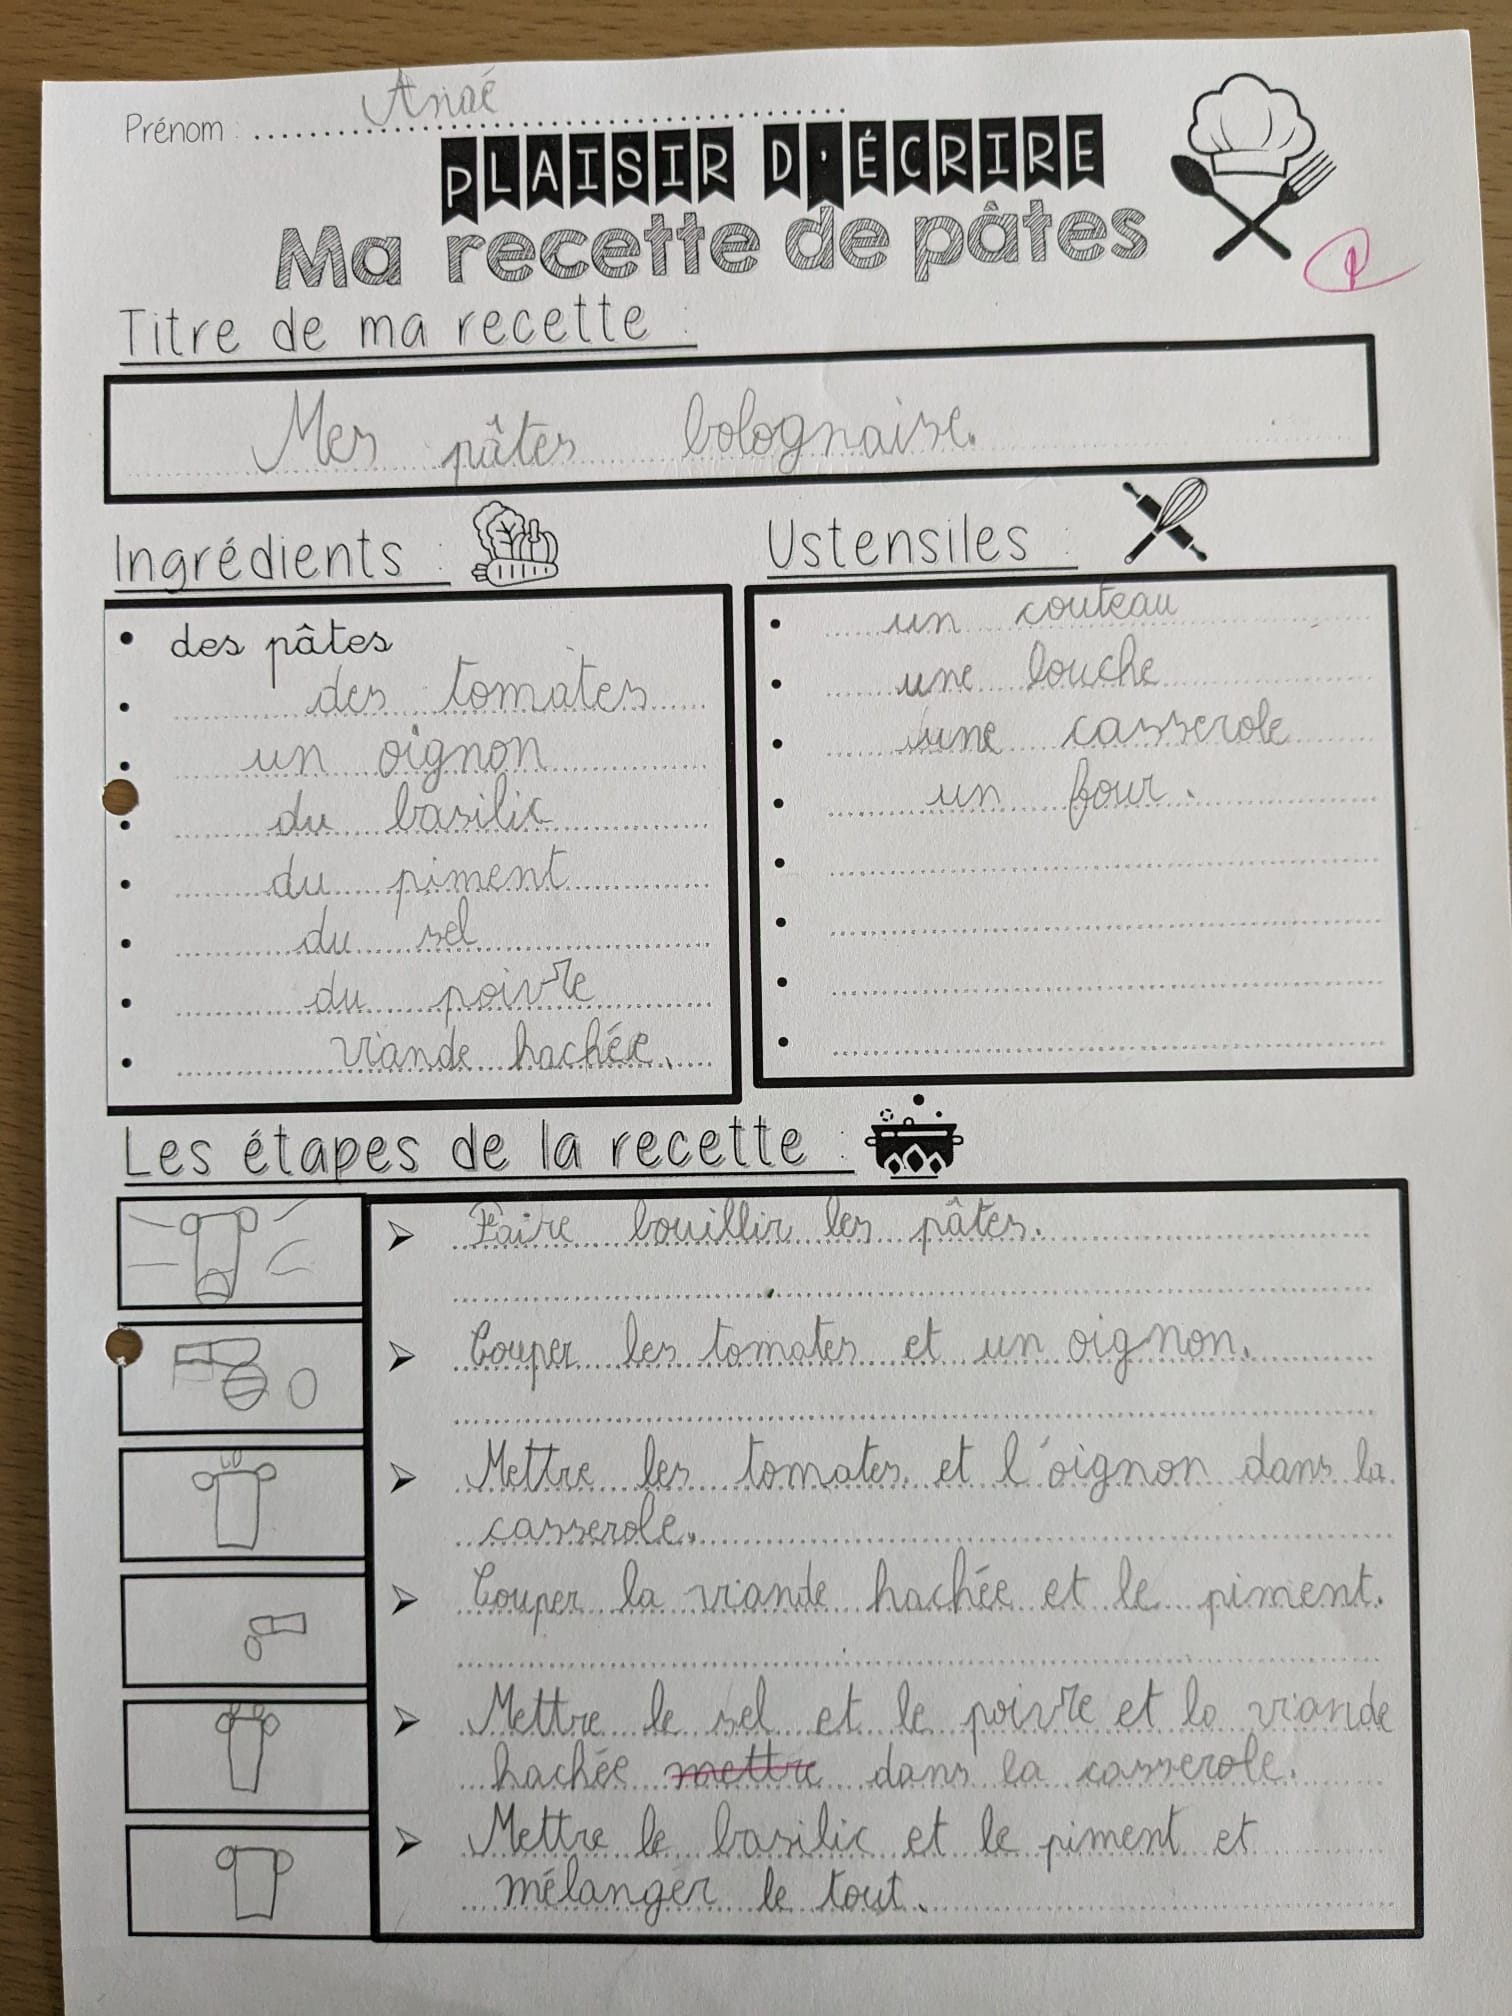 Prénom : Anaé
PLAISIR D'ÉCRIRE
Ma recette de pâtes
Titre de ma recette :
Mes pâtes bolognaise.
Ingrédients :
• des pâtes
• des tomates
• un oignon
• du basilic
• du piment
• du sel
• du poivre
• viande hachée.
Ustensiles :
• un couteau
• une louche
• une casserole
• un four.
Les étapes de la recette :
➤ Faire bouillir les pâtes.
➤ Couper les tomates et un oignon.
➤ Mettre les tomates et l'oignon dans la
casserole.
➤ Couper la viande hachée et le piment.
➤ Mettre le sel et le poivre et la viande
hachée mettre dans la casserole.
➤ Mettre le basilic et le piment et
mélanger le tout.